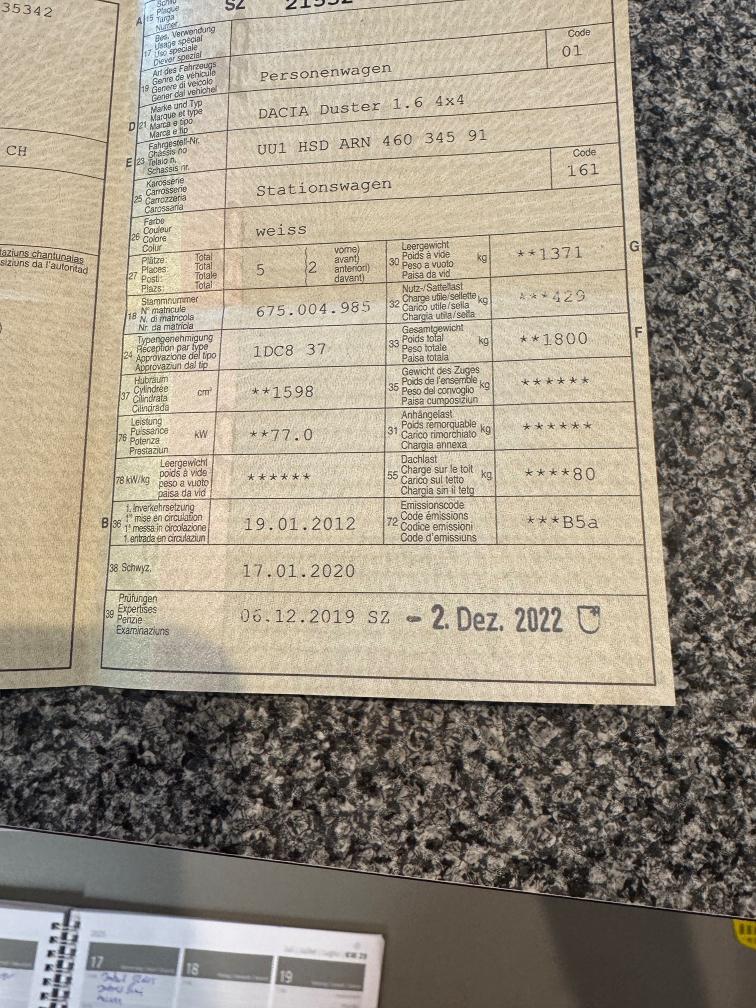 35342
CH
laziuns chantunalas
siziuns da l'autoritad
SZ
A 15 Plaque
Targa
Numer
17 Bes. Verwendung
Usage spécial
Uso speciale
Diever spezial
Code
01
19 Art des Fahrzeugs
Genre de véhicule
Genere di veicolo
Gener dal vehichel
Personenwagen
D 21 Marke und Typ
Marque et type
Marca e tipo
Marca e tip
DACIA Duster 1.6 4x4
E 23 Fahrgestell-Nr.
Châssis no
Telaio n.
Schassis nr.
UU1 HSD ARN 460 345 91
25 Karosserie
Carrosserie
Carrozzeria
Carossaria
Stationswagen
Code
161
26 Farbe
Couleur
Colore
Colur
weiss
27 Plätze: Total
Places: Total
Posti: Totale
Plazs: Total
5
2
vorne)
avant)
anteriori)
davant)
30 Leergewicht
Poids à vide
Peso a vuoto
Paisa da vid
kg
**1371
G
18 Stammnummer
N° matricule
N. di matricola
Nr. da matricla
675.004.985
32 Nutz-/Sattellast
Charge utile/sellette
Carico utile/sella
Chargia utila/sella
kg
***429
24 Typengenehmigung
Réception par type
Approvazione del tipo
Approvaziun dal tip
1DC8 37
33 Gesamtgewicht
Poids total
Peso totale
Paisa totala
kg
**1800
F
37 Hubraum
Cylindrée
Cilindrata
Cilindrada
cm³
**1598
35 Gewicht des Zuges
Poids de l'ensemble
Peso del convoglio
Paisa cumposiziun
kg
******
76 Leistung
Puissance
Potenza
Prestaziun
kW
**77.0
31 Anhängelast
Poids remorquable
Carico rimorchiato
Chargia annexa
kg
******
78 kW/kg
Leergewicht
poids à vide
peso a vuoto
paisa da vid
******
55 Dachlast
Charge sur le toit
Carico sul tetto
Chargia sin il tetg
kg
****80
B 36 1. Inverkehrsetzung
1re mise en circulation
1a messa in circolazione
1. entrada en circulaziun
19.01.2012
72 Emissionscode
Code émissions
Codice emissioni
Code d'emissiuns
***B5a
38 Schwyz,
17.01.2020
39 Prüfungen
Expertises
Perizie
Examinaziuns
06.12.2019 SZ – 2. Dez. 2022
17
18
19